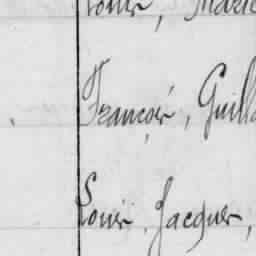 Louis, Marie
François, Guill
Louis, Jacques,